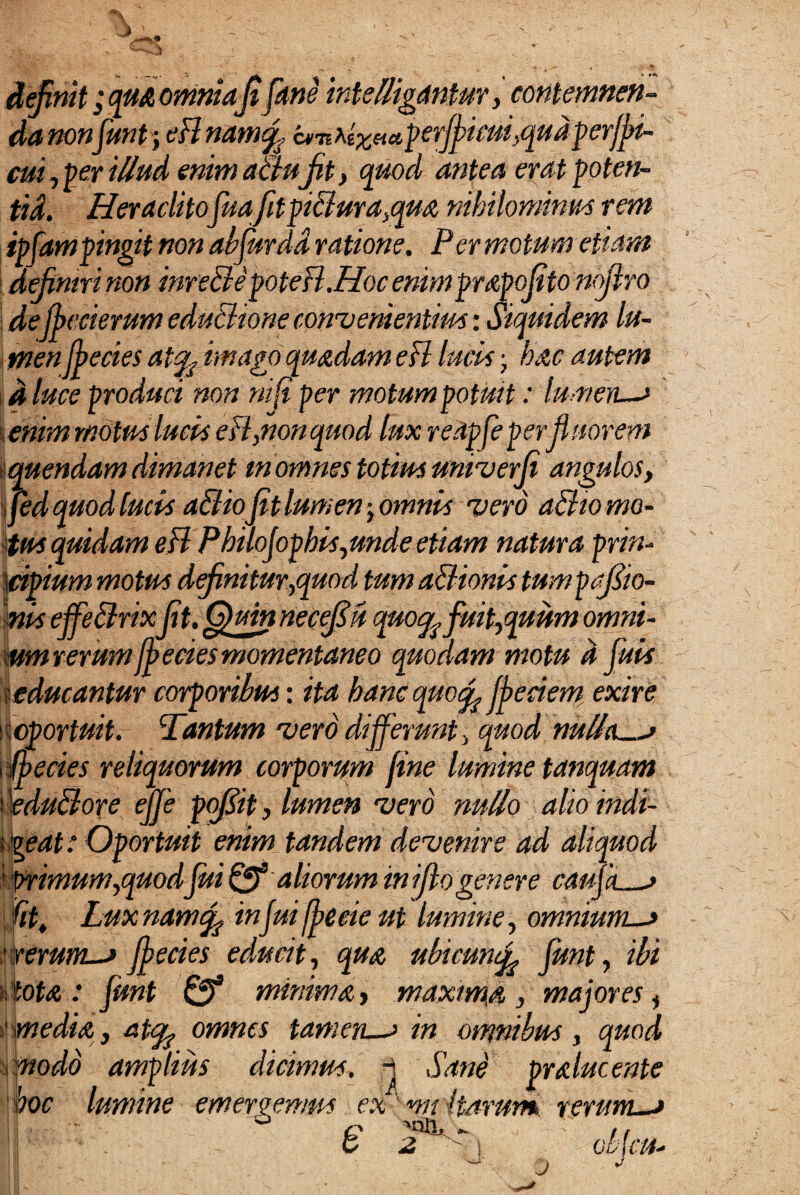 definit ; quæ omnia si sanè intelligantur, contemnen-
da non sunt ; est namq; perspicui, quà perspi-
cui, per illud enim actu fit, quod antea erat poten-
tiâ. Heraclito sua sit pictura, quæ nihilominus rem
ipsam pingit non absurdâ ratione. Per motum etiam
definiri non inrectè potest. Hoc enim præposito nostro
de specierum eductione convenientius : Siquidem lu-
men species atq; imago quædam est lucis ; hæc autem
à luce produci non nisi per motum potuit : lumen
enim motus lucis est, non quod lux reapse per fluorem
quendam dimanet in omnes totius universi angulos,
sed quod lucis actio sit lumen ; omnis verò actio mo-
tus quidam est Philosophis, unde etiam natura prin-
cipium motus definitur, quod tum actionis tum passio-
nis effectrix sit. Quin necessū quoq; fuit, quùm omni-
um rerum species momentaneo quodam motu à suis
educantur corporibus : ita hanc quoq; speciem exire
oportuit. Tantum verò differunt, quod nulla
species reliquorum corporum sine lumine tanquam
eductore esse possit, lumen verò nullo alio indi-
geat : Oportuit enim tandem devenire ad aliquod
primum, quod sui & aliorum in isto genere causa
sit. Lux namq; in sui specie ut lumine, omnium
rerum species educit, quæ ubicunq; sunt, ibi
totæ : sunt & minimæ, maximæ, majores,
mediæ, atq; omnes tamen in omnibus, quod
modò ampliùs dicimus. Sanè prælucente
hoc lumine emergemus ex rerum
2 obscu-